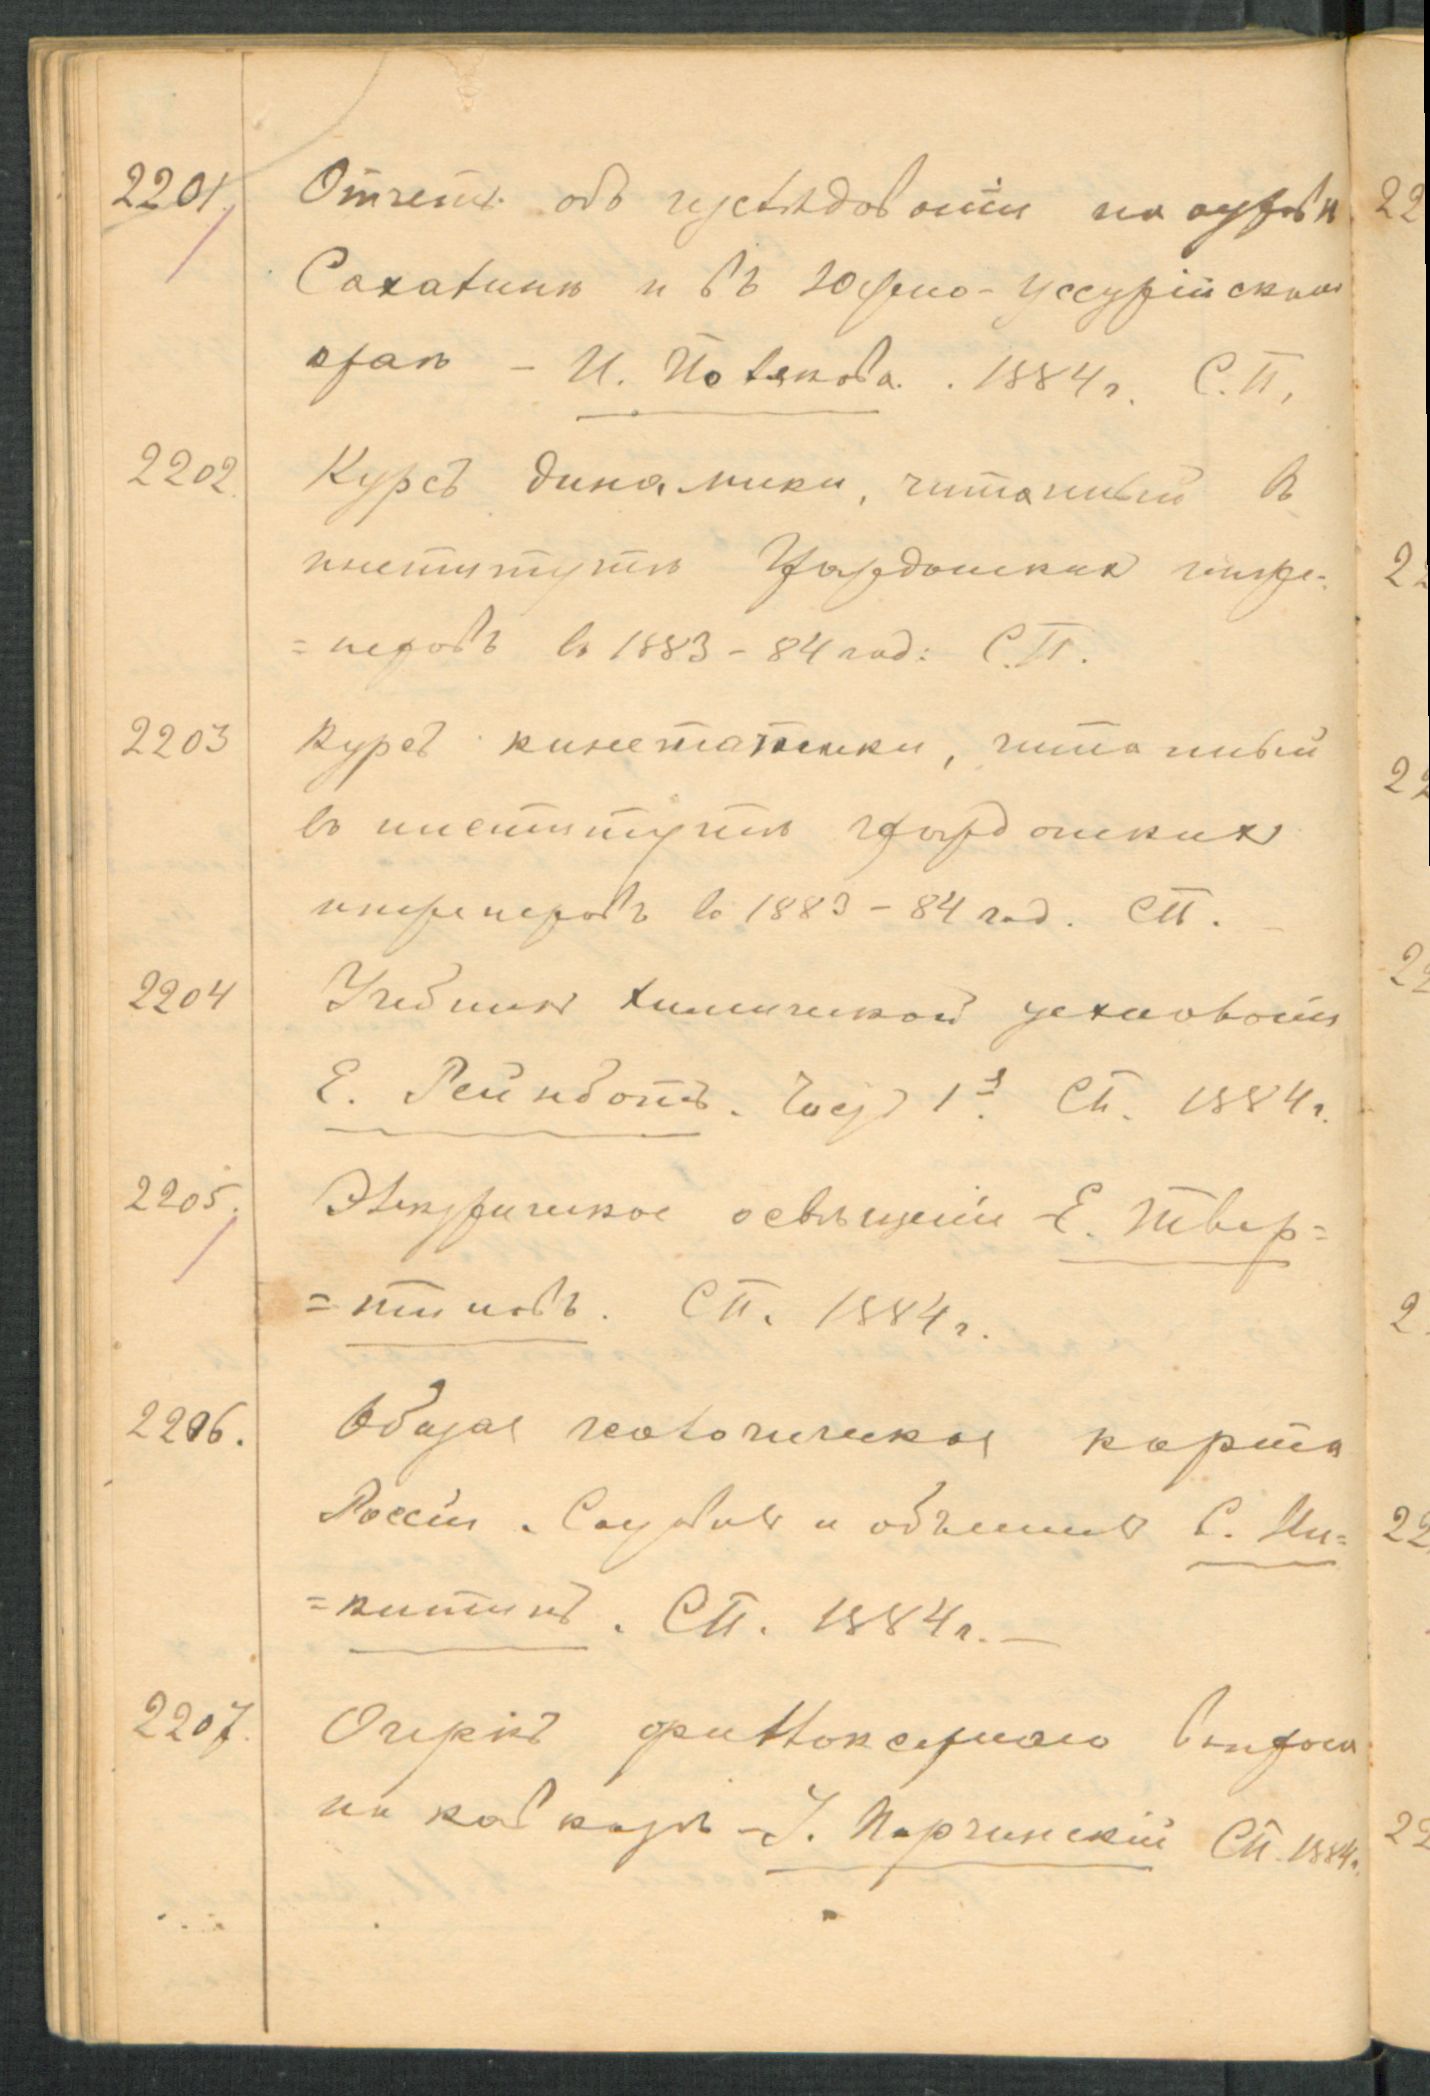 2201. Отчетъ объ изслѣдованіи на остров[ѣ]
Сахалинѣ и въ Южно-Уссурійскомъ
краѣ – И. Полякова. 1884 г. С.П.
2202. Курсъ динамики, читанный въ
институтѣ Гражданскихъ инже=
=неровъ въ 1883–84 год: С.П.
2203 Курсъ кинематики, читанный
въ институтѣ гражданскихъ
инженеровъ въ 1883–84 год. СП.
2204 Учебникъ химической
Е. Рейнботъ. Часть 1я. СП. 1884 г.
2205. Электрическое освѣщеніе – Е. Твер=
=тиновъ. СП. 1884 г.
2206. Общая геологическая карта
Россіи. Составилъ и объяснилъ С. Ни=
=китинъ. СП. 1884 г. –
2207. Очеркъ филлоксернаго вопроса
на кавказѣ – I. Порчинскій СП. 1884 г.